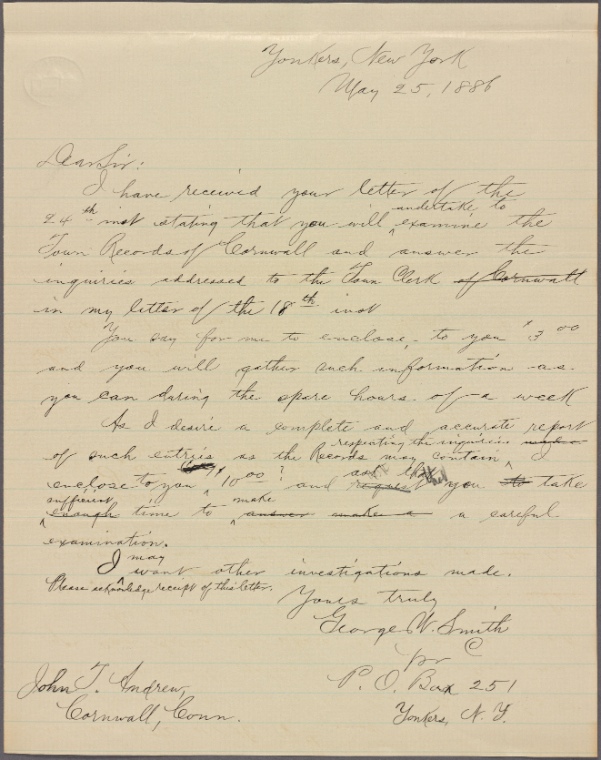 Yonkers, New York
May 25, 1886
Dear Sir:
I have received your letter of the
24th inst stating that you will undertake to examine the
Town Records of Cornwall and answer the
inquiries addressed to the Town Clerk of Cornwall
in my letter of the 18th inst
You say for me to enclose, to you $3 00
and you will gather such information as
you can during the spare hours of a week
As I desire a complete and accurate report
of such entries as the Records may contain respecting the inquiries I
enclose to you $10 00 and ask that request you to take
sufficient enough time to make answer make a a careful
examination.
I may want other investigations made.
Please acknowledge receipt of this letter.
Yours truly
George W. Smith
pr C
P. O. Box 251
Yonkers, N. Y.
John T. Andrew,
Cornwall, Conn.